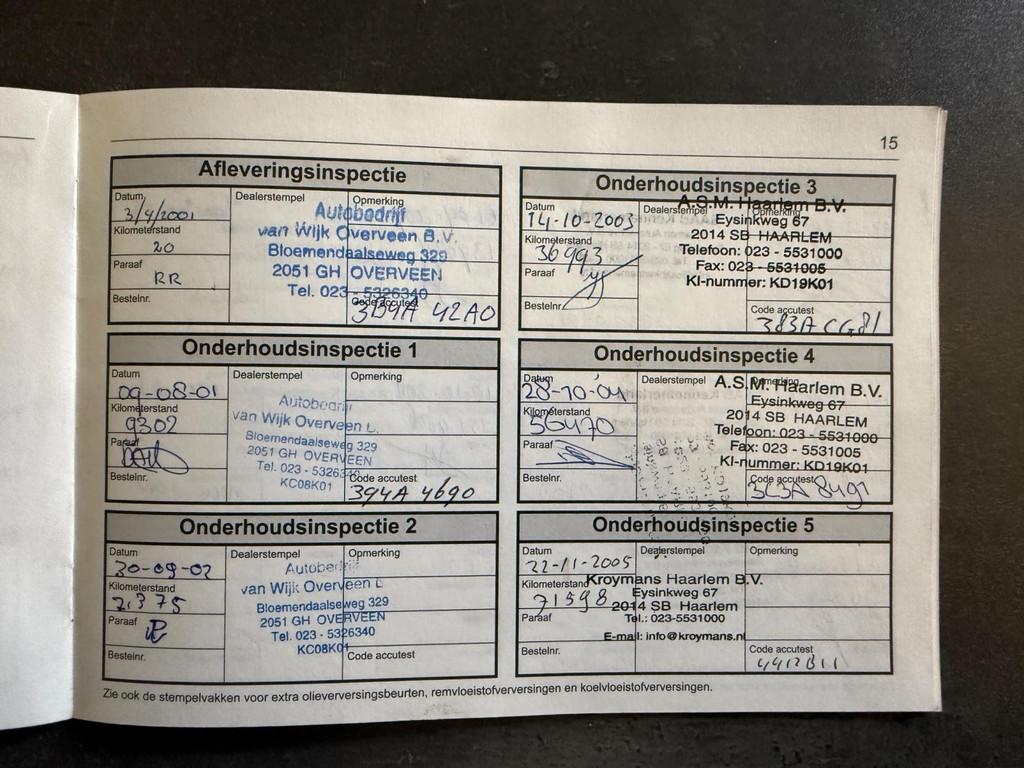 15
Afleveringsinspectie
Datum Dealerstempel Opmerking
3/4/2001
Kilometerstand
20
Paraaf
RR
Bestelnr.
Autobedrijf
van Wijk Overveen B.V.
Bloemendaalseweg 329
2051 GH OVERVEEN
Tel. 023 - 5326340
Code accutest
3D9A 42A0
Onderhoudsinspectie 1
Datum Dealerstempel Opmerking
09-08-01
Kilometerstand
9302
Paraaf
Bestelnr.
Autobedrijf
van Wijk Overveen
Bloemendaalseweg 329
2051 GH OVERVEEN
Tel. 023 - 5326340
KC08K01
Code accutest
394A 4690
Onderhoudsinspectie 2
Datum Dealerstempel Opmerking
30-09-02
Kilometerstand
21375
Paraaf
Bestelnr.
Autobedrijf
van Wijk Overveen
Bloemendaalseweg 329
2051 GH OVERVEEN
Tel. 023 - 5326340
KC08K01
Code accutest
Onderhoudsinspectie 3
Datum Dealerstempel Opmerking
14-10-2003
Kilometerstand
36993
Paraaf
Bestelnr.
A.S.M. Haarlem B.V.
Eysinkweg 67
2014 SB HAARLEM
Telefoon: 023 - 5531000
Fax: 023 - 5531005
KI-nummer: KD19K01
Code accutest
383A CG81
Onderhoudsinspectie 4
Datum Dealerstempel Opmerking
28-10-04
Kilometerstand
56470
Paraaf
Bestelnr.
A.S.M. Haarlem B.V.
Eysinkweg 67
2014 SB HAARLEM
Telefoon: 023 - 5531000
Fax: 023 - 5531005
KI-nummer: KD19K01
Code accutest
3C3A 8491
Onderhoudsinspectie 5
Datum Dealerstempel Opmerking
22-11-2005
Kilometerstand
71598
Paraaf
Bestelnr.
Kroymans Haarlem B.V.
Eysinkweg 67
2014 SB Haarlem
Tel.: 023-5531000
E-mail: info@kroymans.nl
Code accutest
4412B11
Zie ook de stempelvakken voor extra olieverversingsbeurten, remvloeistofverversingen en koelvloeistofverversingen.